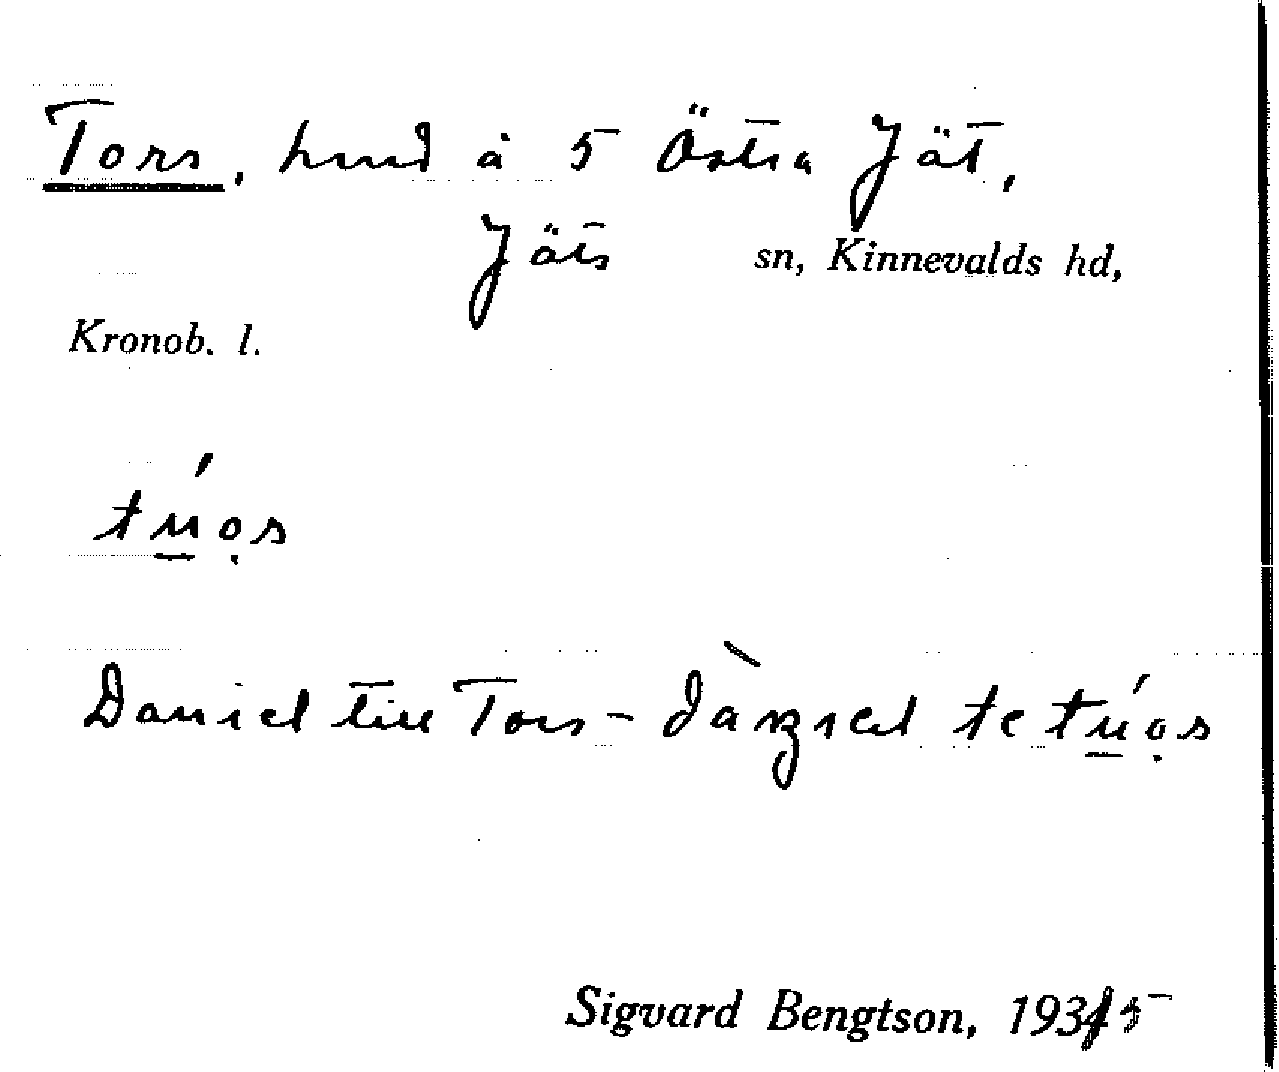 Tors, hmd å 5 Östra Jät,
Jäts sn, Kinnevalds hd,
Kronob. l.
túo̤s
Daniel till Tors -
Sigvard Bengtson, 1935